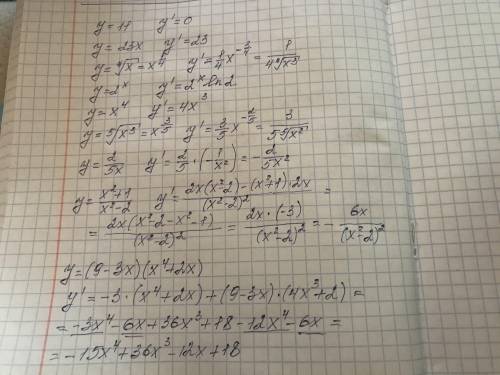 y=11 y'=0
y=23x y'=23
y=⁴√x=x⁴ y'=1/4 x^(-3/4)=1/(4⁴√x³)
y=2ˣ y'=2ˣ ln2
y=x⁴ y'=4x³
y=⁵√x³=x^(3/5) y'=3/5 x^(-2/5)=3/(5⁵√x²)
y=2/(5x) y'=2/5·(-1/x²)=-2/(5x²)
y=(x²+1)/(x²-2) y'=(2x(x²-2)-(x²+1)·2x)/(x²-2)²=
=(2x(x²-2-x²-1))/(x²-2)²=(2x·(-3))/(x²-2)²=-6x/(x²-2)²
y=(9-3x)(x⁴+2x)
y'=-3·(x⁴+2x)+(9-3x)·(4x³+2)=
=-3x⁴-6x+36x³+18-12x⁴-6x=
=-15x⁴+36x³-12x+18